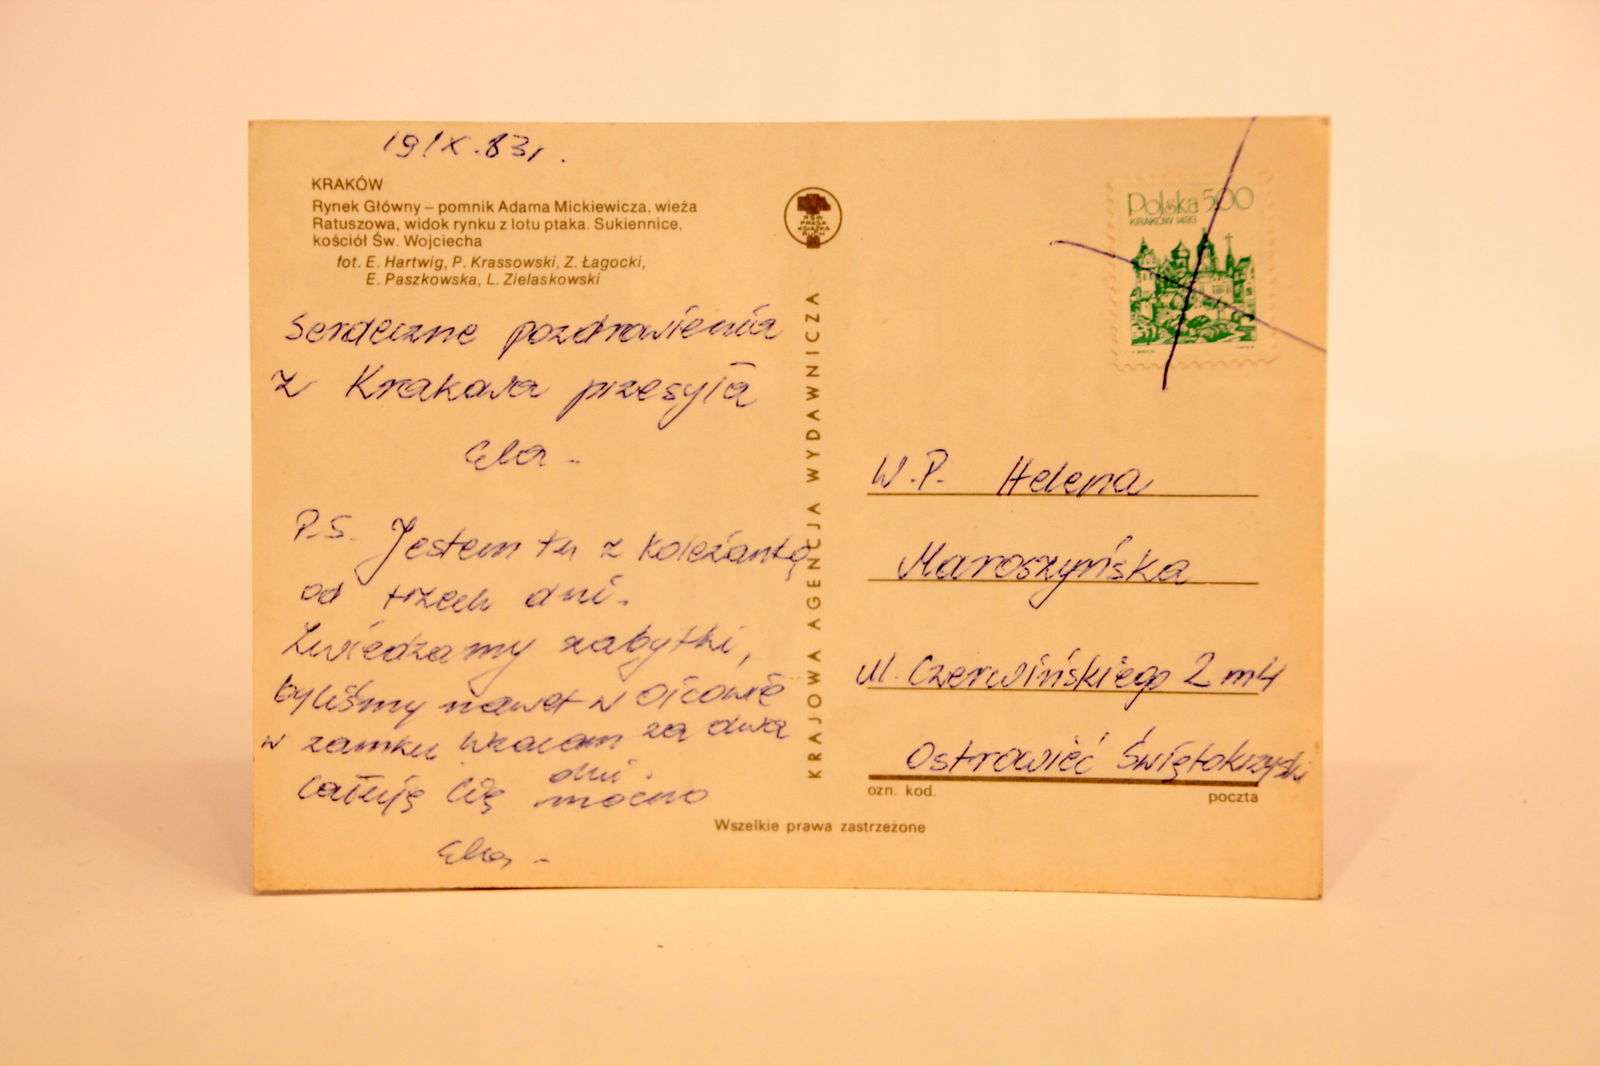 19 IX. 83r.
KRAKÓW
Rynek Główny – pomnik Adama Mickiewicza, wieża
Ratuszowa, widok rynku z lotu ptaka. Sukiennice,
kościół Św. Wojciecha
fot. E. Hartwig, P. Krassowski, Z. Łagocki,
E. Paszkowska, L. Zielaskowski
Serdeczne pozdrowienia
z Krakowa przesyła
Ela -
P.S. Jestem tu z koleżanką
od trzech dni.
Zwiedzamy zabytki,
byliśmy nawet w Ojcowie
w zamku Wracam za dwa
dni.
Całuję Cię mocno
Ela -
RSW
PRASA
KSIĄŻKA
RUCH
KRAJOWA AGENCJA WYDAWNICZA
Polska 500
KRAKÓW 1493
W.P. Helena
Maroszyńska
ul. Czerwińskiego 2 m 4
Ostrowieć Świętokrzyski
ozn. kod. poczta
Wszelkie prawa zastrzeżone